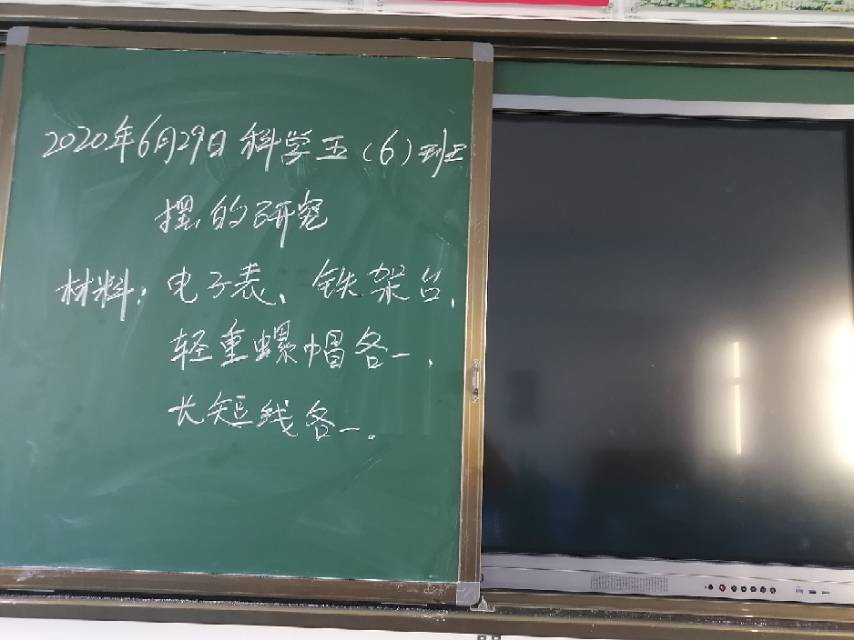 2020年6月29日 科学五（6）班
摆的研究
材料：电子表、铁架台、
轻重螺帽各一、
长短线各一。